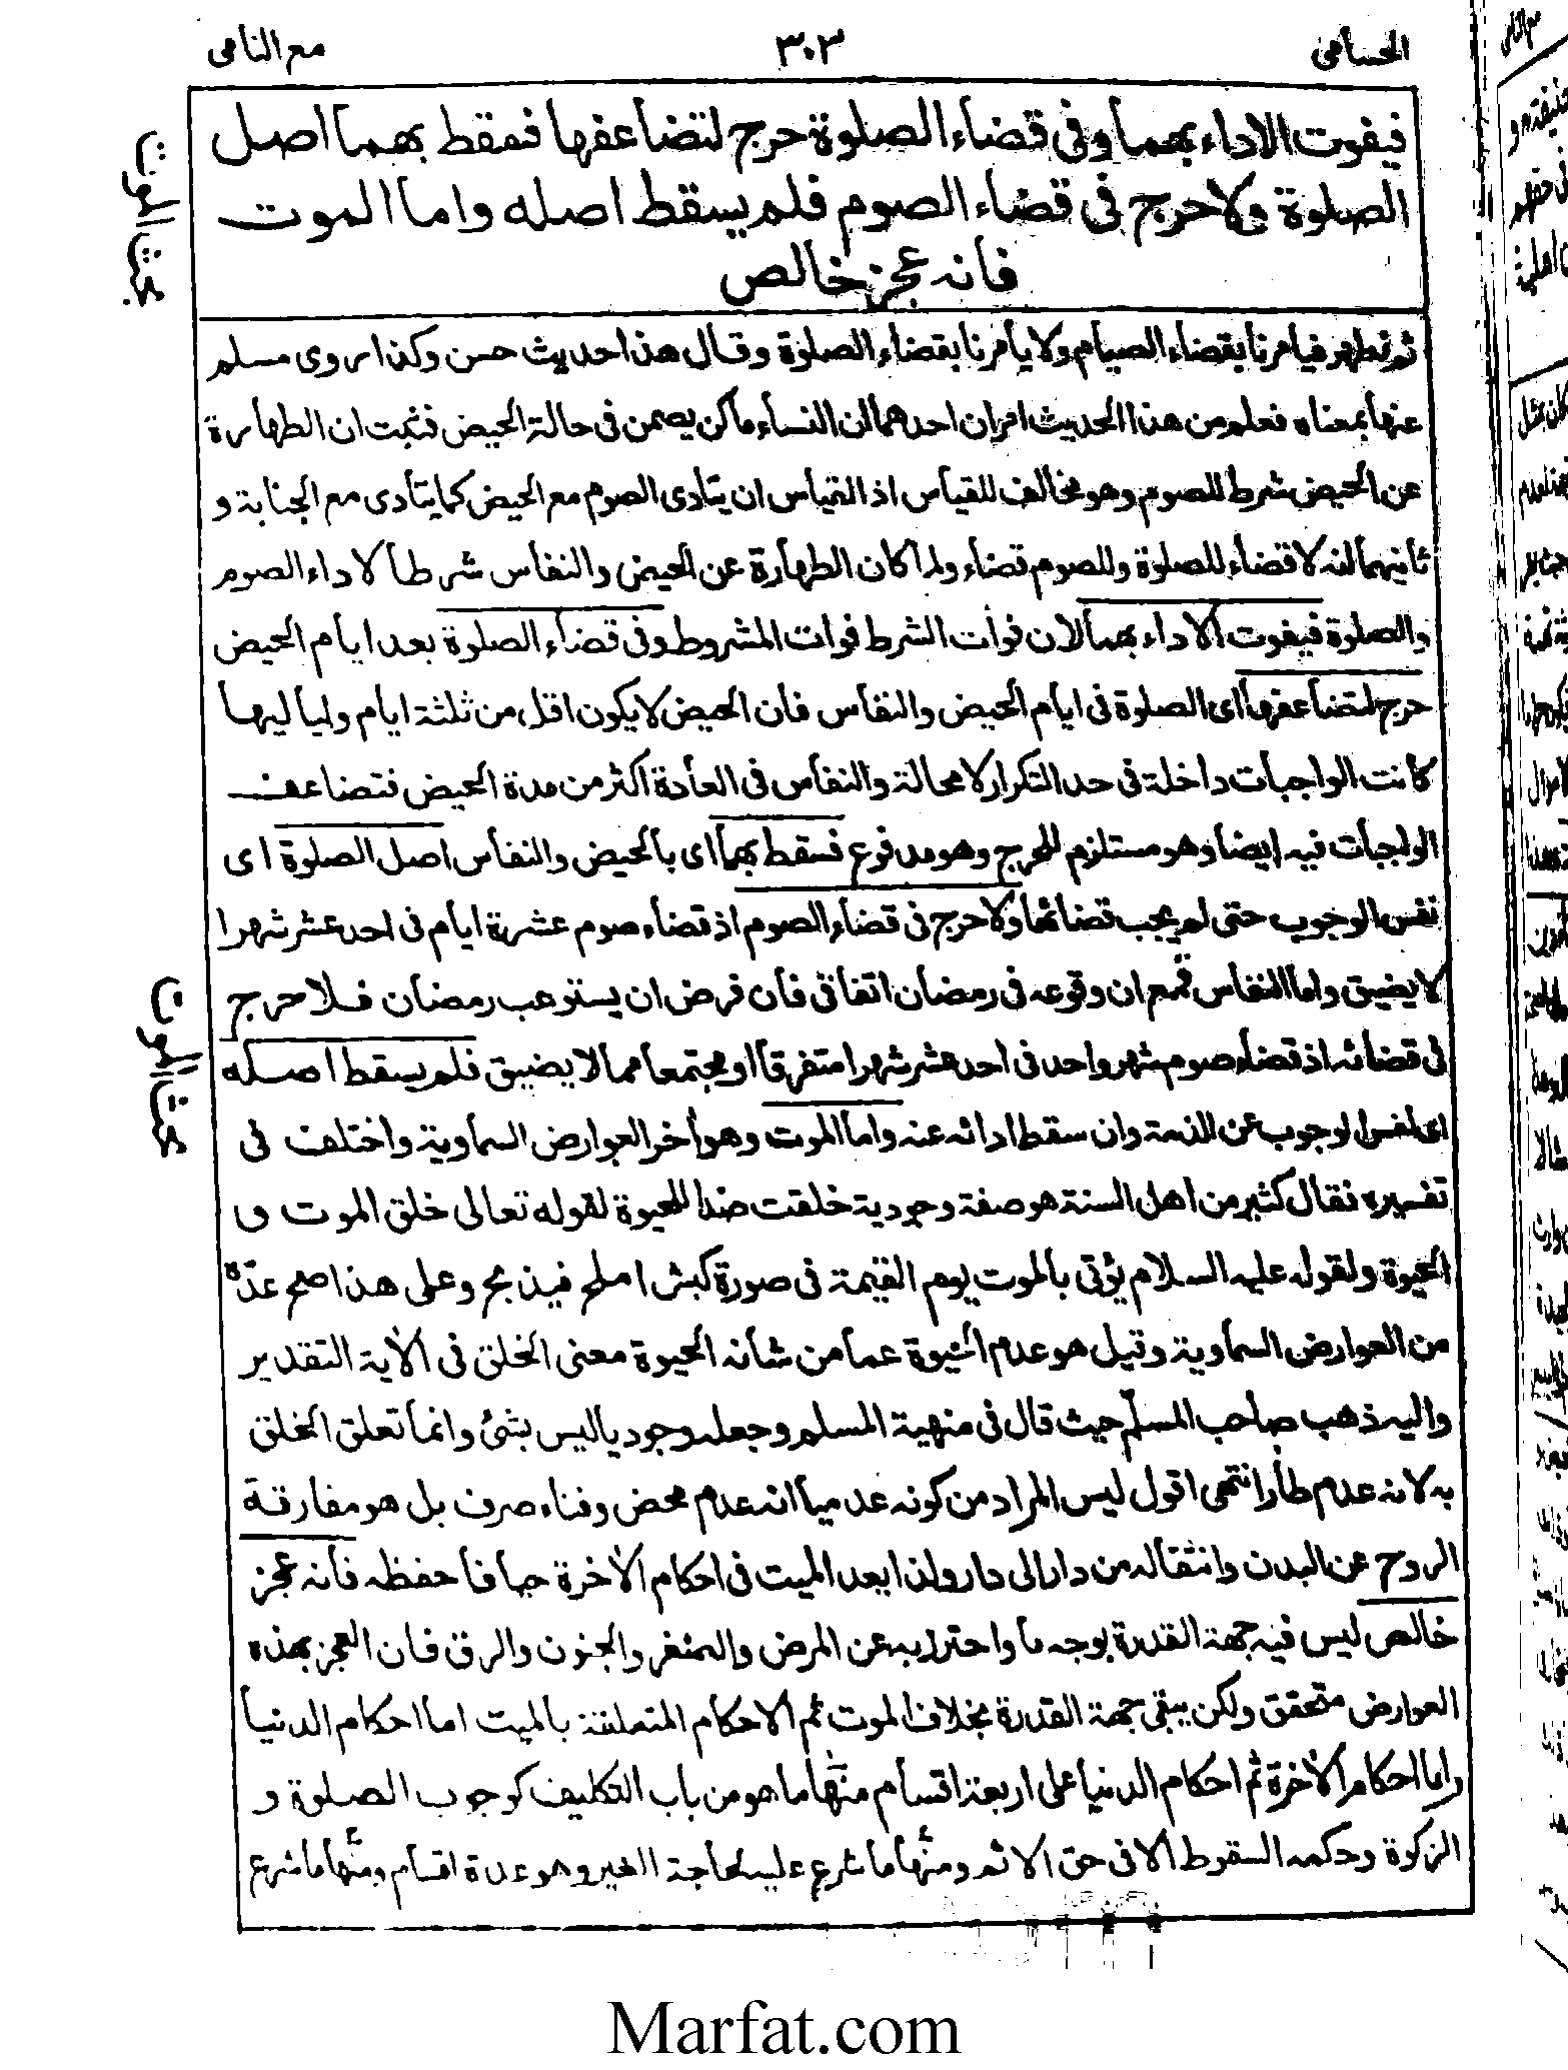 الحسامى
۳۰۳
مع النامى
فيفوت الاداء بهما وفى قضاء الصلوة حرج لتضاعفها فسقط بهما اصل
الصلوة ولا حرج فى قضاء الصوم فلم يسقط اصله واما الموت
فانه عجز خالص
بحث الموت
ثم نطهر فيأمرنا بقضاء الصيام ولا يأمرنا بقضاء الصلوة وقال هذا حديث حسن وكذا روى مسلم
عنها بمعناه فعلم من هذا الحديث امران احدهما ان النساء ما كن يصمن فى حالة الحيض فثبت ان الطهارة
عن الحيض شرط للصوم وهو مخالف للقياس اذ القياس ان يتادى الصوم مع الحيض كما يتأدى مع الجنابة و
ثانيهما انه لا قضاء للصلوة وللصوم قضاء ولما كان الطهارة عن الحيض والنفاس شرطا لاداء الصوم
والصلوة فيفوت الاداء بهما لان فوات الشرط فوات المشروط وفى قضاء الصلوة بعد ايام الحيض
حرج لتضاعفها اى الصلوة فى ايام الحيض والنفاس فان الحيض لا يكون اقل من ثلثة ايام ولياليها
كانت الواجبات داخلة فى حد التكرار لا محالة والنفاس فى العادة اكثر من مدة الحيض فتضاعف
الواجبات فيه ايضا وهو مستلزم للحرج وهو مدفوع فسقط بهما اى بالحيض والنفاس اصل الصلوة اى
نفس الوجوب حتى لم يجب قضائها ولا حرج فى قضاء الصوم اذ قضاء صوم عشرة ايام فى احد عشر شهرا
لا يضيق واما النفاس فمع ان وقوعه فى رمضان اتفاقى فان فرض ان يستوعب رمضان فلا حرج
فى قضائه اذ قضاء صوم شهر واحد فى احد عشر شهرا متفرقا او مجتمعا مما لا يضيق فلم يسقط اصله
بحث الموت
اى نفس الوجوب عن الذمة وان سقط ادائه عنه واما الموت وهو اخر العوارض السماوية واختلف فى
تفسيره فقال كثير من اهل السنة هو صفة وجودية خلقت ضدا للحيوة لقوله تعالى خلق الموت و
الحيوة ولقوله عليه السلام يؤتى بالموت يوم القيمة فى صورة كبش املح فيذبح وعلى هذا صح عدّه
من العوارض السماوية وقيل هو عدم الحيوة عما من شانه الحيوة معنى الخلق فى الآية التقدير
واليه ذهب صاحب المسلّم حيث قال فى منهية المسلم وجعله وجوديا ليس بشئ وانما تعلق الخلق
به لانه عدم طار انتهى اقول ليس المراد من كونه عدميا انه عدم محض وفناء صرف بل هو مفارقة
الروح عن البدن وانتقاله من دار الى دار ولذا يعد الميت فى احكام الآخرة حيا فاحفظه فانه عجز
خالص ليس فيه جهة القدرة بوجه ما واحترز به عن المرض والصغر والجنون والرق فان العجز بهذه
العوارض متحقق ولكن يبقى جهة القدرة بخلاف الموت ثم الاحكام المتعلقة بالميت اما احكام الدنيا
واما احكام الآخرة ثم احكام الدنيا على اربعة اقسام منها ما هو من باب التكليف كوجوب الصلوة و
الزكوة وحكمه السقوط الا فى حق الاثم ومنها ما شرع عليه لحاجة الغير وهو عدة اقسام ومنها ما شرع
Marfat.com